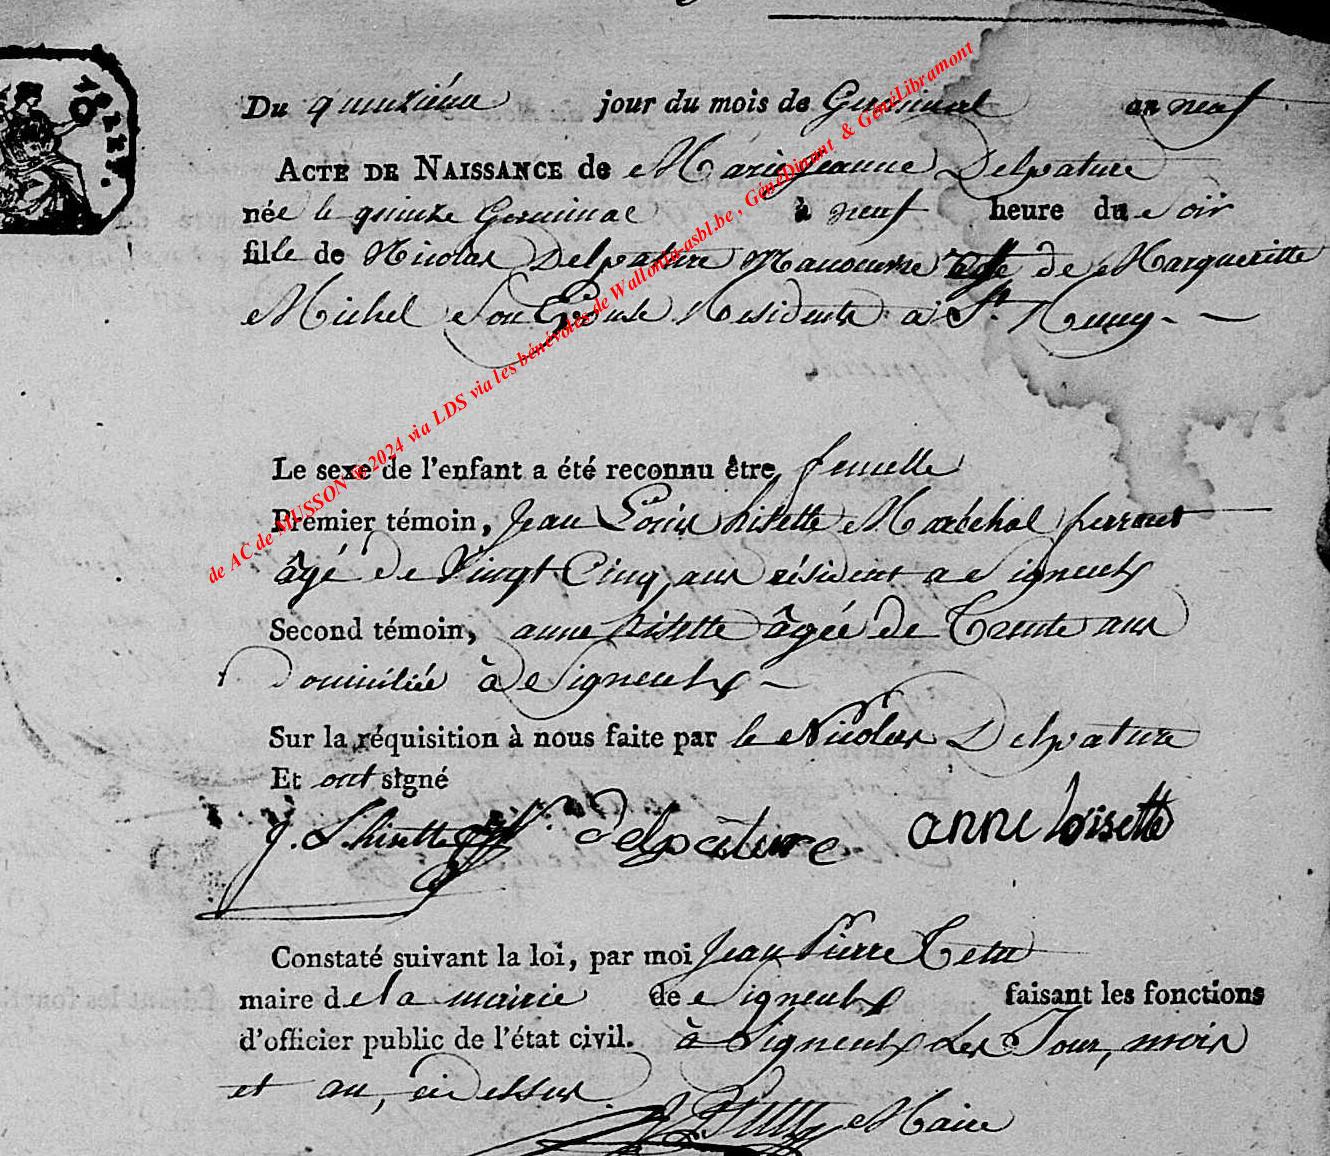 Du quinziéme jour du mois de Germinal an neuf
ACTE DE NAISSANCE de Marie Jeanne Delpature
née le quinze Germinal à neuf heure du Soir
fille de Nicolas Delpature Manoeuvre et de Margueritte
Michel Son Epouse Residente à St. Remy - -
Le sexe de l'enfant a été reconnu être femelle
Premier témoin, Jean Louis hisette Maréchal ferrant
âgé de Vingt Cinq ans résident a Signeulx
Second témoin, anne hisette âgée de Trente ans
Domiciliée à Signeulx -
Sur la réquisition à nous faite par le Nicolas Delpature
Et ont signé
J. L. hisette delpature anne hoisette
Constaté suivant la loi, par moi Jean Pierre
maire de la mairie de Signeulx faisant les fonctions
d'officier public de l'état civil. à Signeulx Les Jour, mois
et an, ci dessus
Maire
de AC de MUSSON © 2024 via LDS via les bénévoles de Wallonia-asbl.be , GénéDinant & GénéLibramont